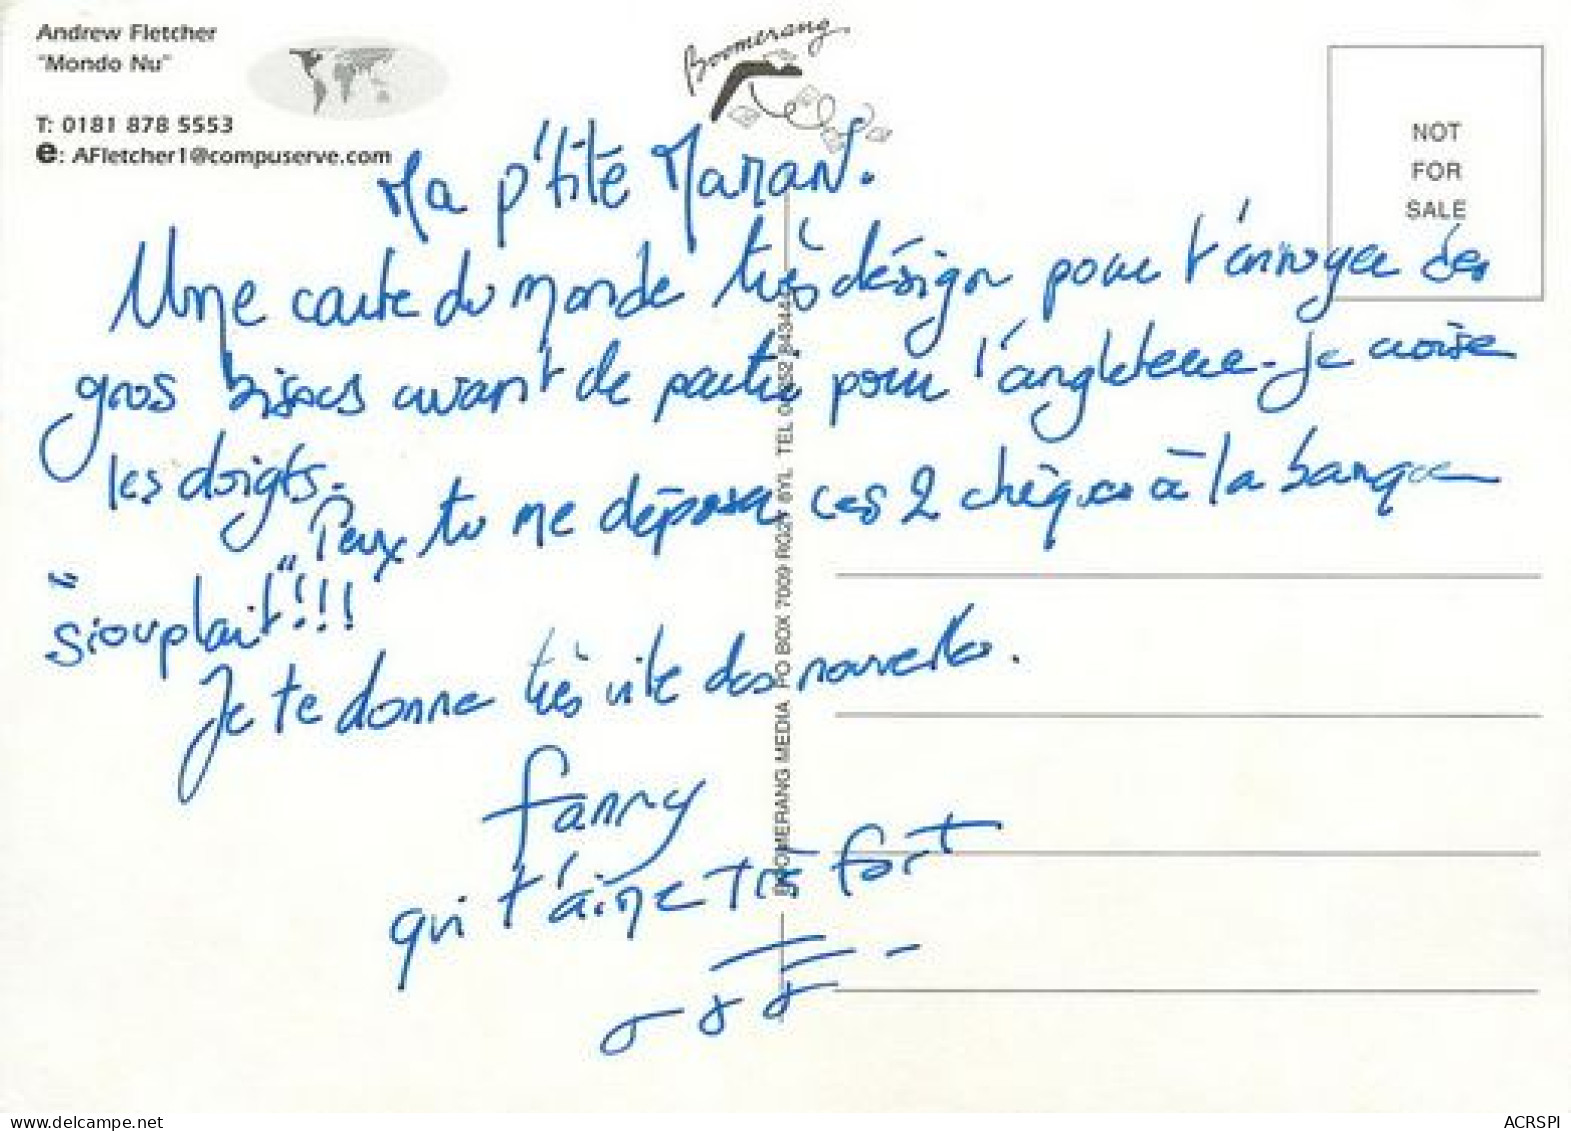 Andrew Fletcher
"Mondo Nu"
T: 0181 878 5553
e: AFletcher1@compuserve.com
Boomerang
NOT
FOR
SALE
Ma p'tite Maman.
Une carte du monde très désign pour t'envoyer des
gros bisous avant de partir pour l'angleterre. Je croise
les doigts.
Peux tu me déposer ces 2 chèques à la banque
"siouplait"!!!
Je te donne très vite des nouvelles.
fanny
qui t'aime très fort
BOOMERANG MEDIA PO BOX 7009 RG27 8YL TEL
www.delcampe.net
ACRSPI